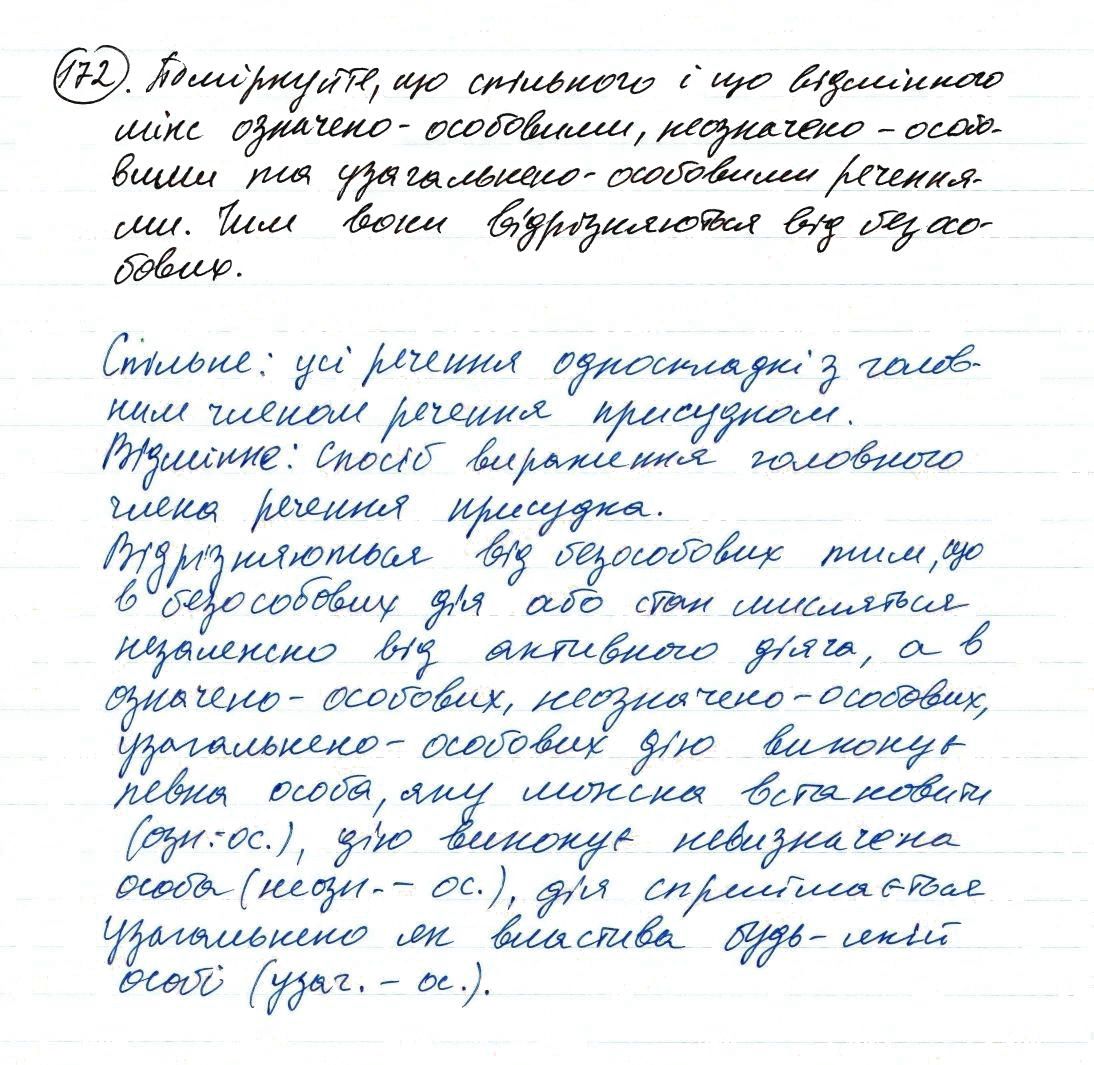 172. Поміркуйте, що спільного і що відмінного
між означено-особовими, неозначено-особо-
вими та узагальнено-особовими речення-
ми. Чим вони відрізняються від безосо-
бових.
Спільне: усі речення односкладні з голов-
ним членом речення присудком.
Відмінне: спосіб вираження головного
члена речення присудка.
Відрізняються від безособових тим, що
в безособових дія або стан мисляться
незалежно від активного діяча, а в
означено-особових, неозначено-особових,
узагальнено-особових дію виконує
певна особа, яку можна встановити
(озн.-ос.), дію виконує невизначена
особа (неозн.-ос.), дія сприймається
узагальнено як властива будь-якій
особі (узаг.-ос.).